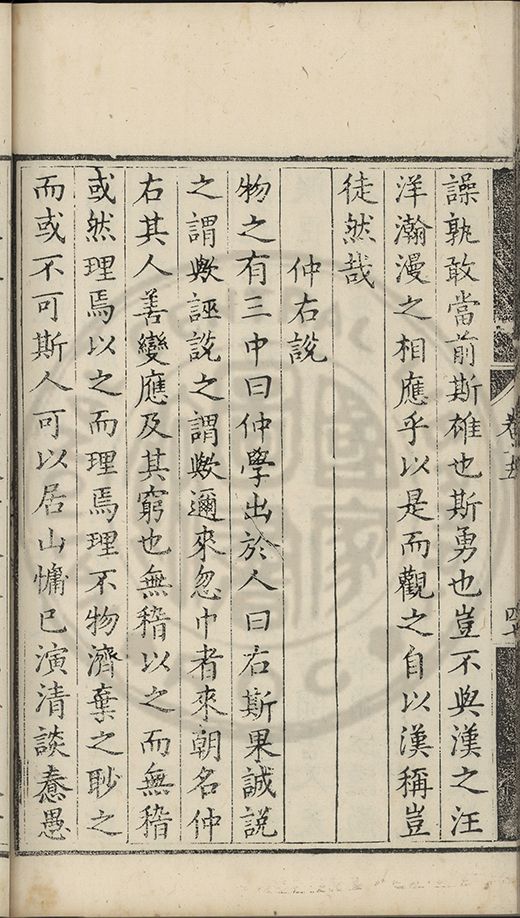 譟孰敢當前斯雄也斯勇也豈不與漢之汪
洋瀚漫之相應乎以是而觀之自以漢稱豈
徒然哉
仲右説
物之有三中曰仲學出於人曰右斯果誠説
之謂歟誣説之謂歟邇來忽巾者來朝名仲
右其人善變應及其窮也無稽以之而無稽
或然理焉以之而理焉理不物濟棄之眇之
而或不可斯人可以居山慵已演清談憃愚